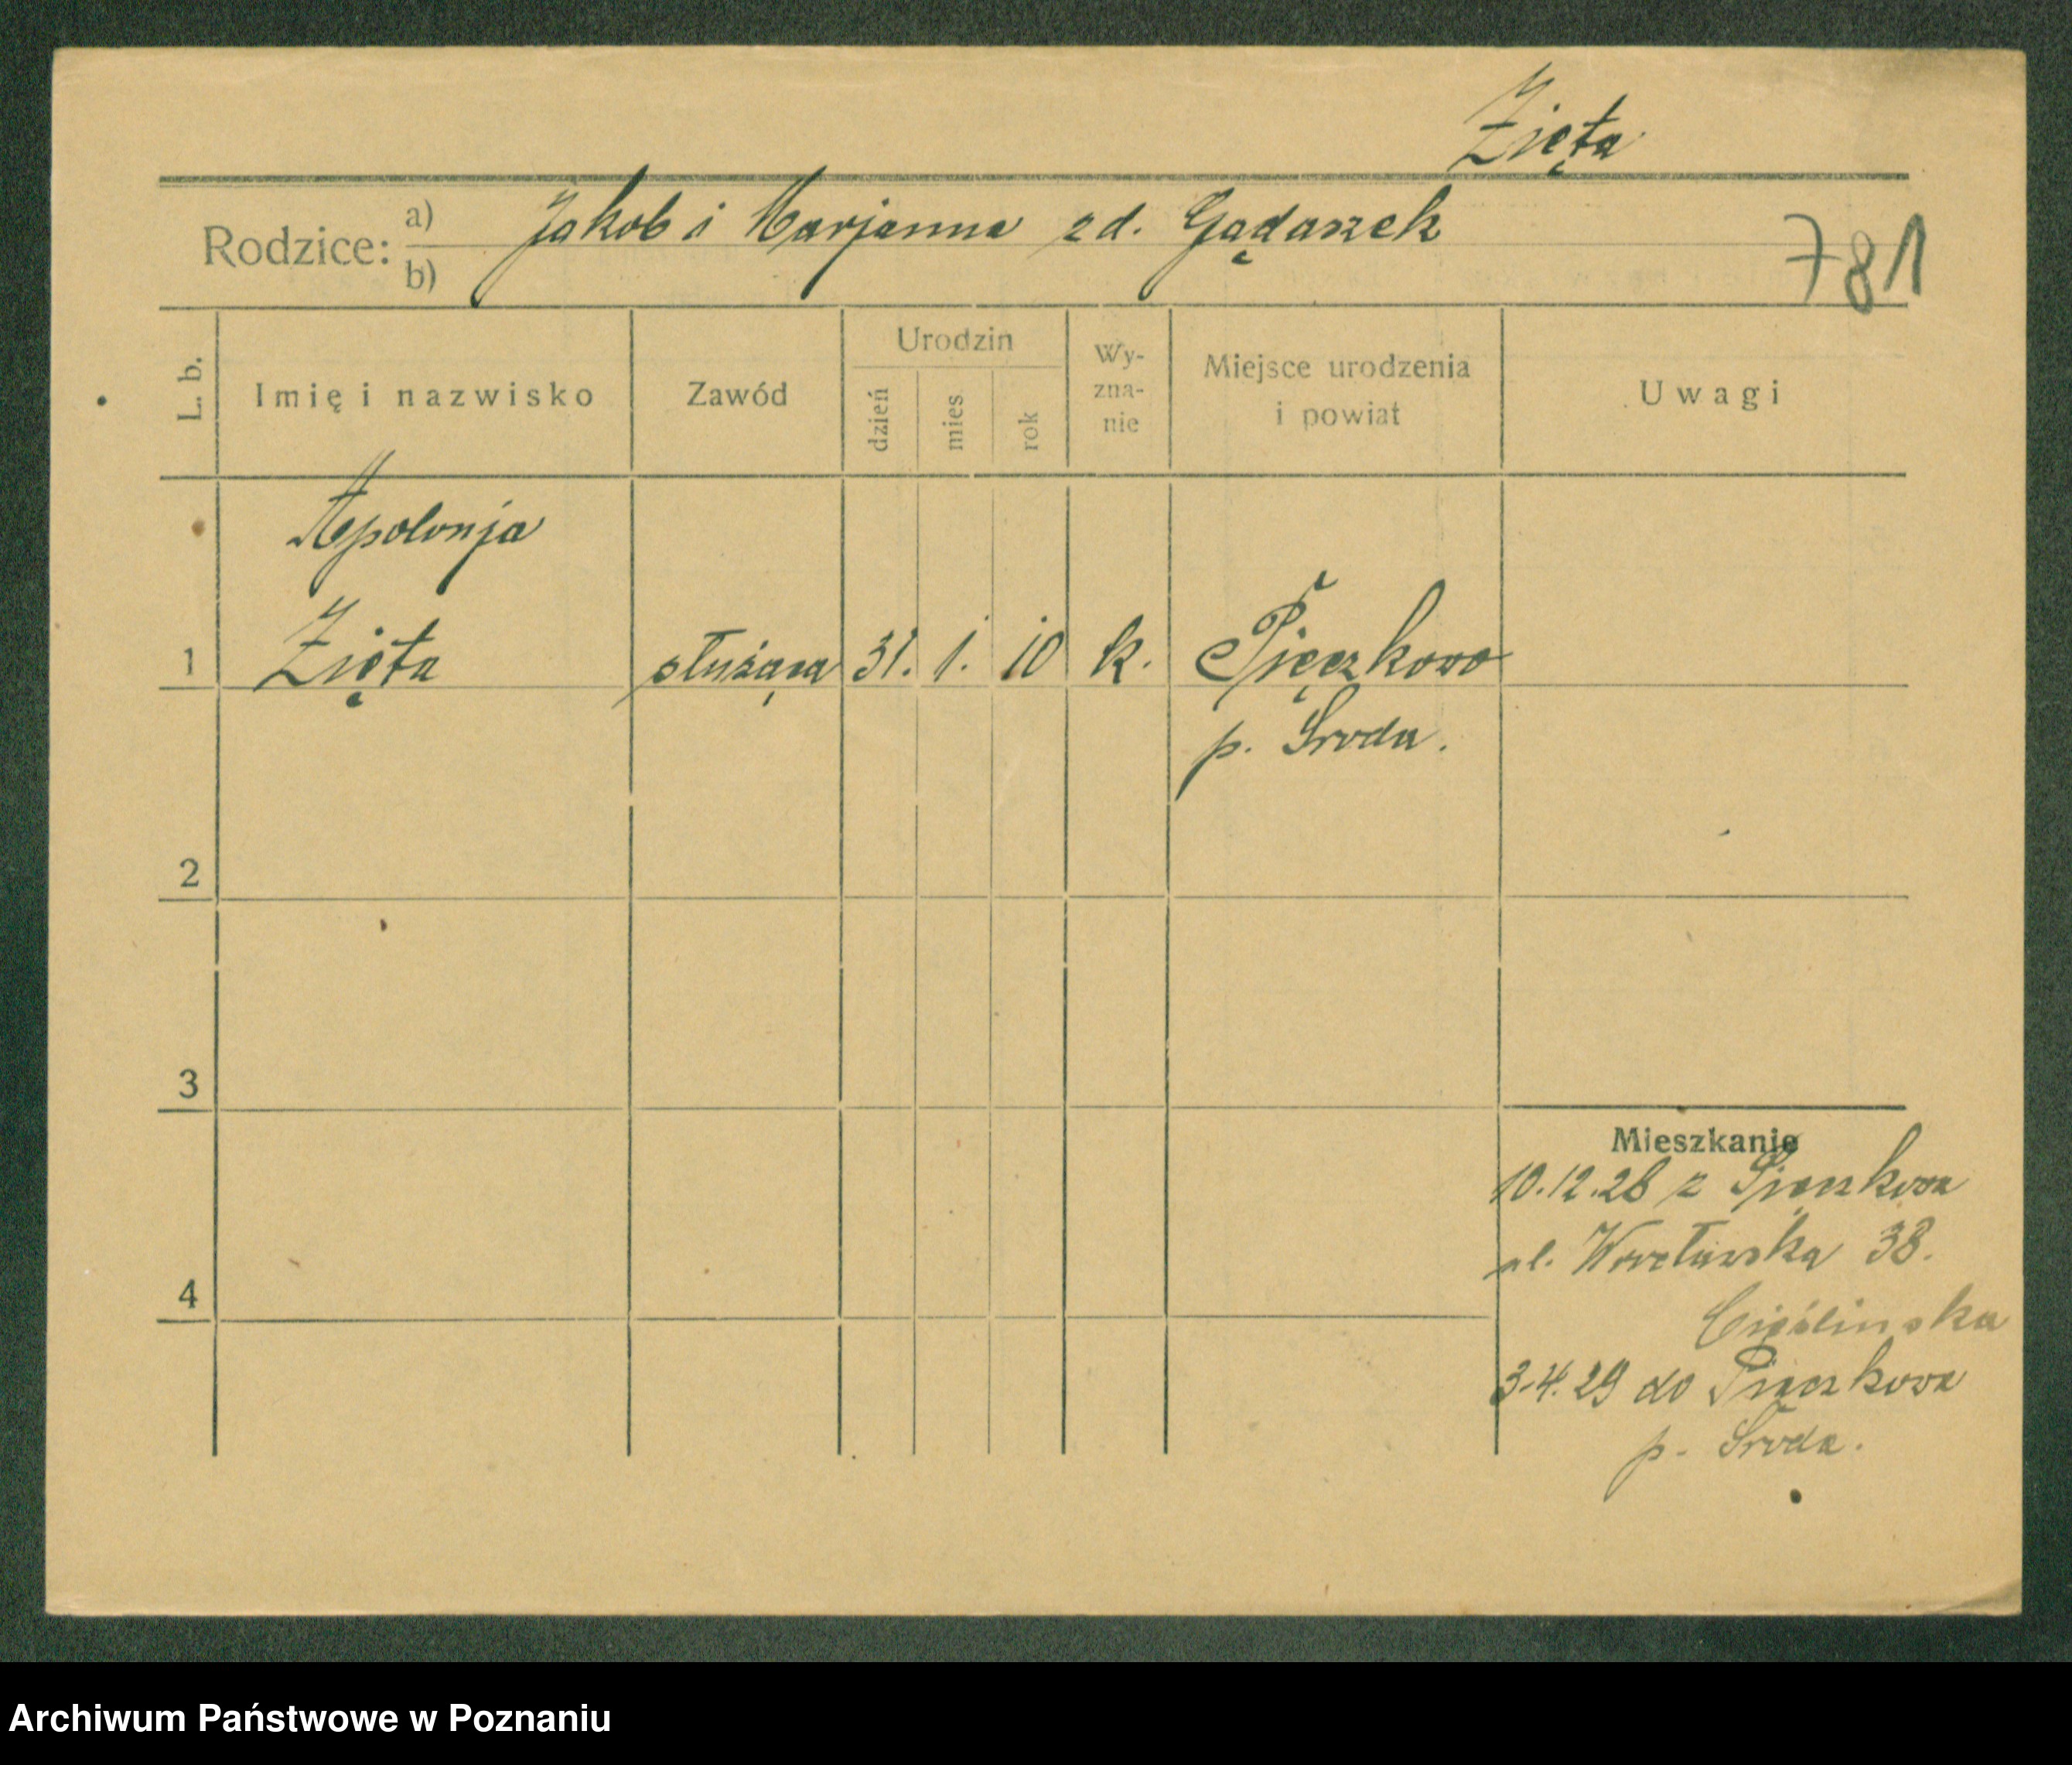 Zięta
Rodzice: a) b) Jakob i Marjanna zd. Gądaszek
781
L. b. Imię i nazwisko Zawód Urodzin dzień mies. rok Wy-zna-nie Miejsce urodzenia i powiat Uwagi
Apolonja
1 Zięta służąca 31. 1. 10 k. Pięczkowo
p. Środa.
2
3
Mieszkanie
10.12.28 z Pięczkowa
4 ul. Wrocławska 38.
Cieślinska
3.4.29 do Pięczkowa
p. Środa.
Archiwum Państwowe w Poznaniu